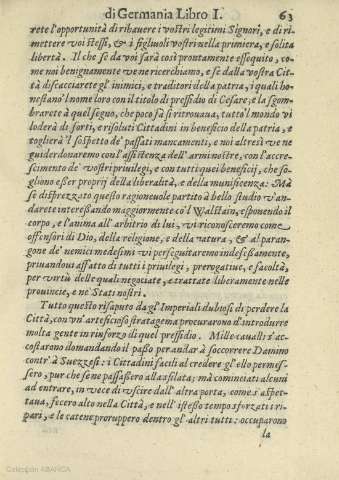 di Germania Libro I. 63
rete l'opportunità di rihauere i vostri legitimi Signori, e di ri-
mettere voi stessi, & i figliuoli vostri nella primiera, e solita
libertà. Il che se da voi sarà così prontamente essequito, co-
me noi benignamente ve ne ricerchiamo, e se dalla vostra Cit-
tà discacciarete gl'inimici, e traditori della patria, i quali ho-
nestano'l nome loro con il titolo di pressidio di Cesare, e la sgom-
brarete à quel segno, che poco fà si ritrouaua, tutto'l mondo vi
loderà di forti, e risoluti Cittadini in beneficio della patria, e
toglierà'l sospetto de' passati mancamenti, e noi altresì ve ne
guiderdonaremo con l'assistenza dell'armi nostre, con l'accre-
scimento de' vostri priuilegi, e con tutti quei beneficij, che so-
gliono esser proprij della liberalità, e della munificenza: Mà
se disprezzato questo ragioneuole partito à bello studio v'an-
darete interessando maggiormente co'l Walstain, esponendo il
corpo, e l'anima all'arbitrio di lui, vi riconosceremo come
offensori di Dio, della religione, e della natura, & al paran-
gone de' nemici medesimi vi perseguitaremo indefessamente,
priuandoui affatto di tutti i priuilegi, prerogatiue, e facoltà,
per virtù delle quali negotiate, e trattate liberamente nelle
prouincie, e ne' Stati nostri.
Tutto questo risaputo da gl'Imperiali dubiosi di perdere la
Città, con vn'arteficioso stratagema procurarono d'introdurre
molta gente in rinforzo di quel pressidio. Mille caualli s'ac-
costarono domandando il passo per andar à soccorrere Damino
contr'à Suezzesi: i Cittadini facili al credere gl'ello permis-
sero, pur che se ne passassero alla sfilata; mà cominciati alcuni
ad entrare, in vece di vscire dall'altra porta, come s'aspet-
taua, fecero alto nella Città, e nell'istesso tempo sforzati i ri-
pari, e le catene proruppero dentro gl'altri tutti: occuparono
la
Colección ABANCA